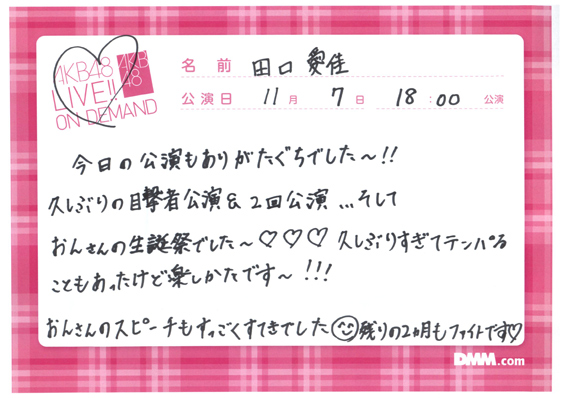 AKB48
LIVE!!
ON DEMAND
AKB
48
名前 田口 愛佳
公演日 11月 7日 18:00 公演
今日の公演もありがたぐちでした〜!!
久しぶりの目撃者公演&2回公演...そして
おんさんの生誕祭でした〜♡♡♡ 久しぶりすぎてテンパる
こともあったけど楽しかたです〜!!!
おんさんのスピーチもすっごくすてきでした☺残りの2ヵ月もファイトです♡
DMM.com